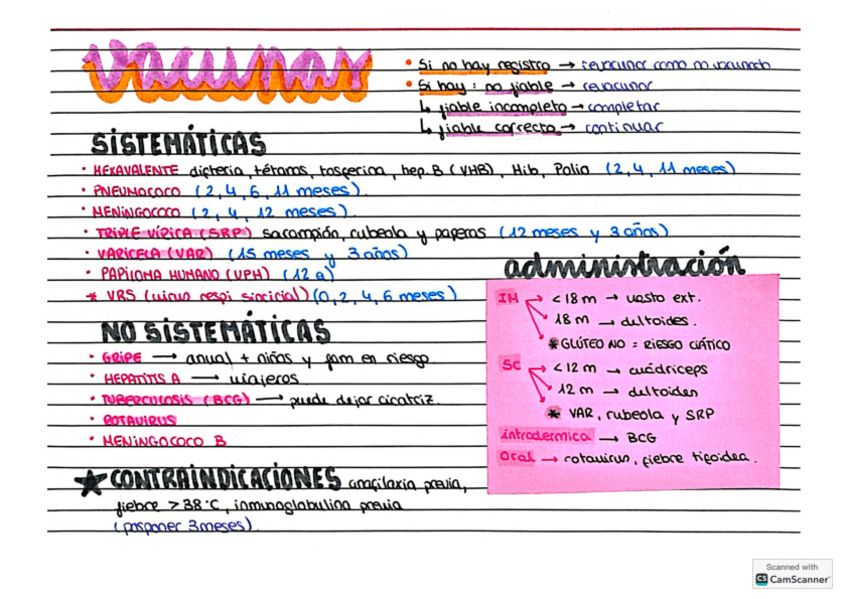 vacunas
• Si no hay registro → revacunar como no vacunado
• Si hay: no fiable → revacunar
↳ fiable incompleto → completar
↳ fiable correcto → continuar
SISTEMÁTICAS
• HEXAVALENTE difteria, tétanos, tosferina, hep. B (VHB), Hib, Polio (2, 4, 11 meses)
• PNEUMOCOCO (2, 4, 6, 11 meses).
• MENINGOCOCO (2, 4, 12 meses).
• TRIPLE VÍRICA (SRP) sarampión, rubeola y paperas (12 meses y 3 años)
• VARICELA (VAR) (15 meses y 3 años)
• PAPILOMA HUMANO (VPH) (12 a)
* VRS (virus respi sincicial) (0, 2, 4, 6 meses)
NO SISTEMÁTICAS
• GRIPE → anual + niños y fam en riesgo.
• HEPATITIS A → viajeros.
• TUBERCULOSIS (BCG) → puede dejar cicatriz.
• ROTAVIRUS
• MENINGOCOCO B
★ CONTRAINDICACIONES anafilaxia previa,
fiebre > 38°C, inmunoglobulina previa
(posponer 3 meses).
administración
IM → < 18 m → vasto ext.
18 m → deltoides.
* GLÚTEO NO = RIESGO CIÁTICO
SC → < 12 m → cuádriceps
12 m → deltoides
* VAR, rubeola y SRP
intradermica → BCG
Oral → rotavirus, fiebre tifoidea.
Scanned with
CS CamScanner